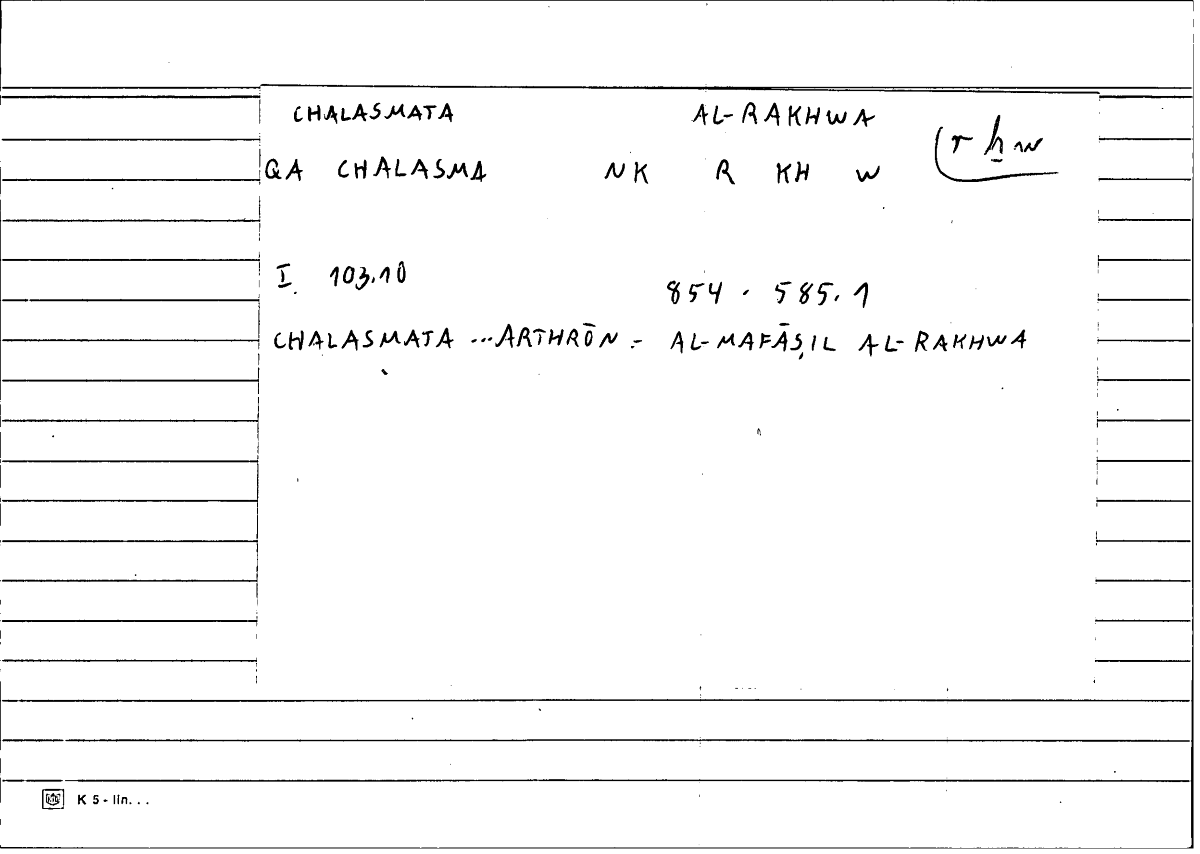 CHALASMATA AL-RAKHWA
r ḫ w
QA CHALASMA NK R KH W
I. 103,10 854 . 585.1
CHALASMATA ... ARTHRŌN = AL-MAFĀṢIL AL-RAKHWA
K 5 - lin. . .